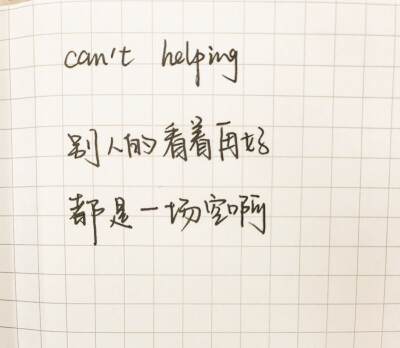 can't helping
别人的看着再好
都是一场空啊